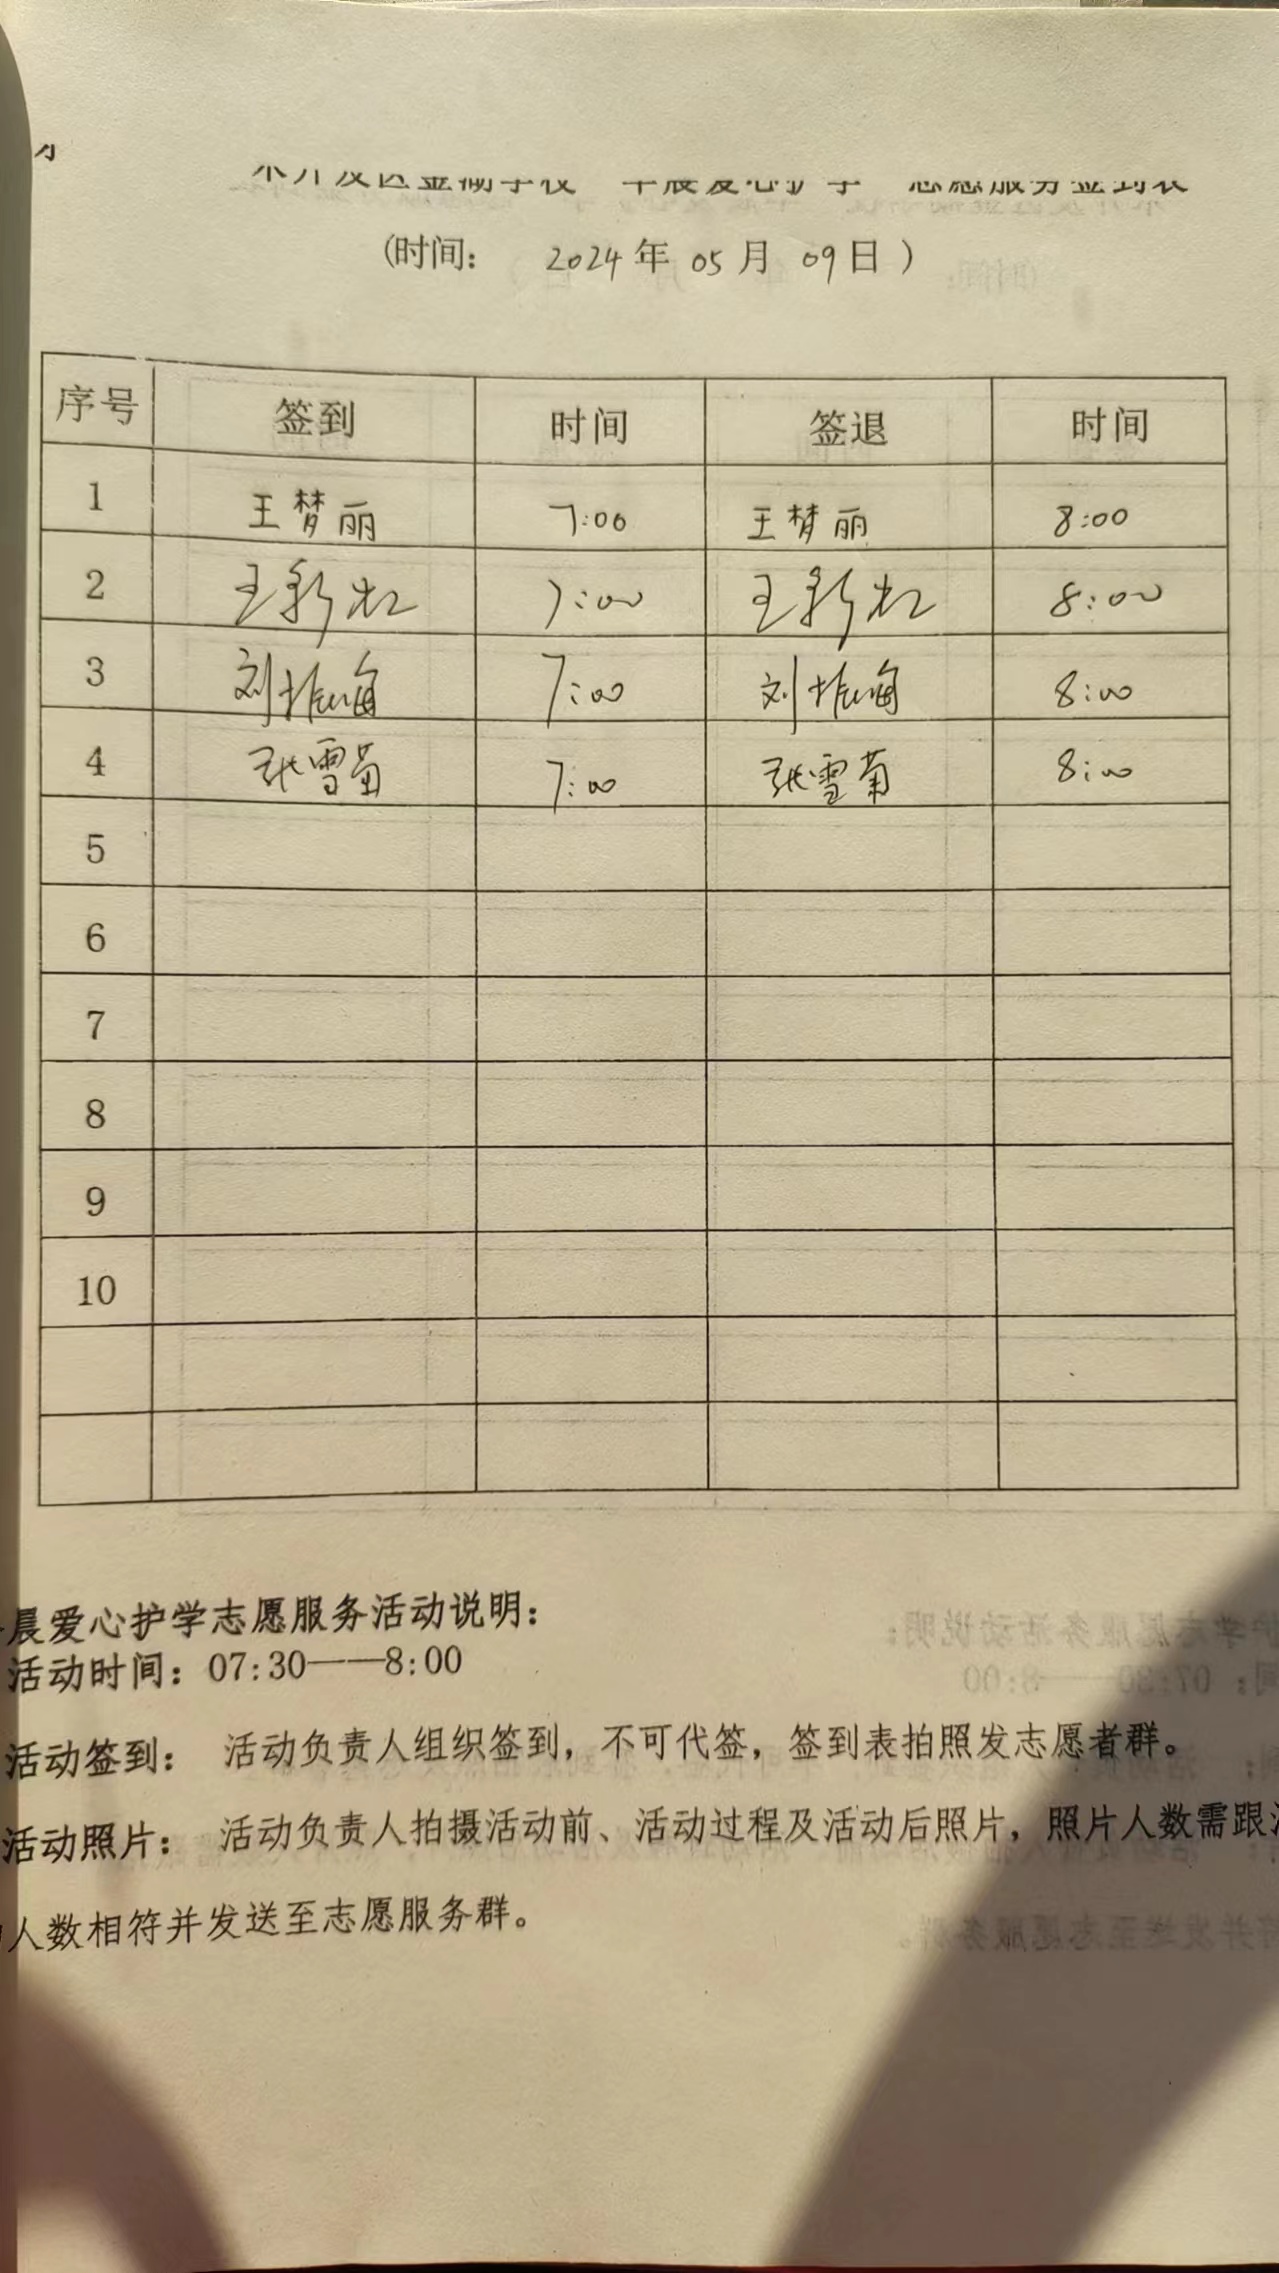 (时间： 2024年 05月 09日)
序号 签到 时间 签退 时间
1 王梦丽 7:00 王梦丽 8:00
2 王新 7:00 王新 8:00
3 刘振海 7:00 刘振海 8:00
4 张雪菊 7:00 张雪菊 8:00
5
6
7
8
9
10
晨爱心护学志愿服务活动说明：
活动时间：07:30——8:00
活动签到： 活动负责人组织签到，不可代签，签到表拍照发志愿者群。
活动照片： 活动负责人拍摄活动前、活动过程及活动后照片，照片人数需跟
人数相符并发送至志愿服务群。